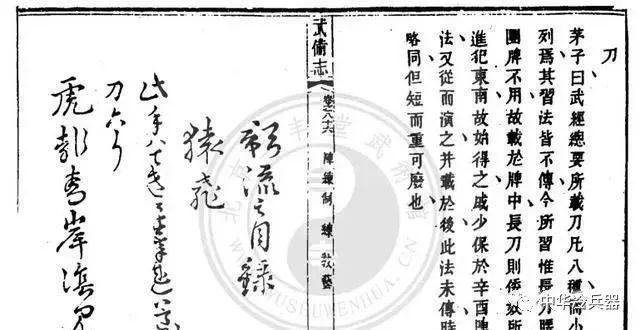 刀
茅子曰武經總要所載刀凡八種而小
列爲其習法皆不傳今所習惟長刀腰
團牌不用故載於牌中長刀則倭奴所
進犯東南故始得之戚少保於辛酉陣
法又從而演之并載於後此法未傳時
略同但短而重可廢也
武備志 卷八十六 陣練制 練 教藝
影流之目錄
猿飛
虎亂青岸陰見
武術館
WUWENHUA.CN
中华冷兵器